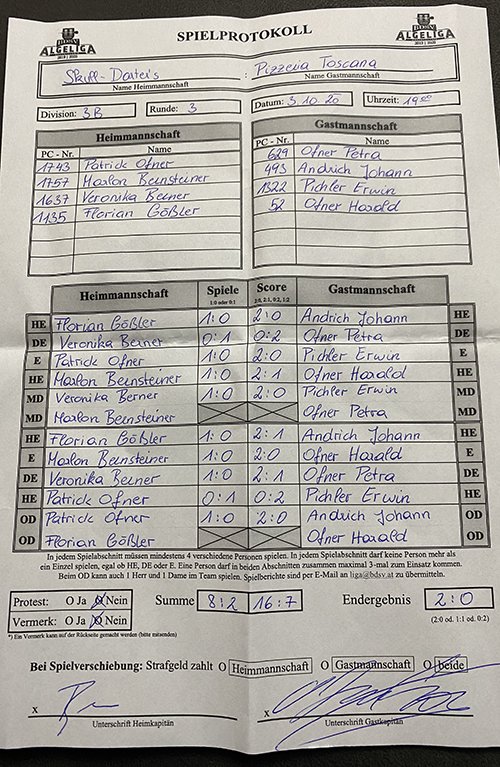 BDSV
ALGELIGA
2019 | 2020
SPIELPROTOKOLL
BDSV
ALGELIGA
2019 | 2020
Skull-Darters : Pizzeria Toscana
Name Heimmannschaft Name Gastmannschaft
Division: 3B Runde: 3 Datum: 3.10.20 Uhrzeit: 19 00
Heimmannschaft Gastmannschaft
PC - Nr. Name PC - Nr. Name
1743 Patrick Ofner 629 Ofner Petra
1757 Marlon Beinsteiner 493 Andrich Johann
1637 Veronika Berner 1322 Pichler Erwin
1135 Florian Gößler 52 Ofner Harald
Heimmannschaft Spiele Score Gastmannschaft
1:0 oder 0:1 2:0, 2:1, 0:2, 1:2
HE Florian Gößler 1:0 2:0 Andrich Johann HE
DE Veronika Berner 0:1 0:2 Ofner Petra DE
E Patrick Ofner 1:0 2:0 Pichler Erwin E
HE Marlon Beinsteiner 1:0 2:1 Ofner Harald HE
MD Veronika Berner 1:0 2:0 Pichler Erwin MD
MD Marlon Beinsteiner Ofner Petra MD
HE Florian Gößler 1:0 2:1 Andrich Johann HE
E Marlon Beinsteiner 1:0 2:0 Ofner Harald E
DE Veronika Berner 1:0 2:1 Ofner Petra DE
HE Patrick Ofner 0:1 0:2 Pichler Erwin HE
OD Patrick Ofner 1:0 2:0 Andrich Johann OD
OD Florian Gößler Ofner Harald OD
In jedem Spielabschnitt müssen mindestens 4 verschiedene Personen spielen. In jedem Spielabschnitt darf keine Person mehr als
ein Einzel spielen, egal ob HE, DE oder E. Eine Person darf in beiden Abschnitten zusammen maximal 3-mal zum Einsatz kommen.
Beim OD kann auch 1 Herr und 1 Dame im Team spielen. Spielberichte sind per E-Mail an liga@bdsv.at zu übermitteln.
Protest: O Ja O Nein Summe 8:2 16:7 Endergebnis 2:0
Vermerk: O Ja O Nein (2:0 od. 1:1 od. 0:2)
*) Ein Vermerk kann auf der Rückseite gemacht werden (bitte mitsenden)
Bei Spielverschiebung: Strafgeld zahlt O Heimmannschaft O Gastmannschaft O beide
x x
Unterschrift Heimkapitän Unterschrift Gastkapitän